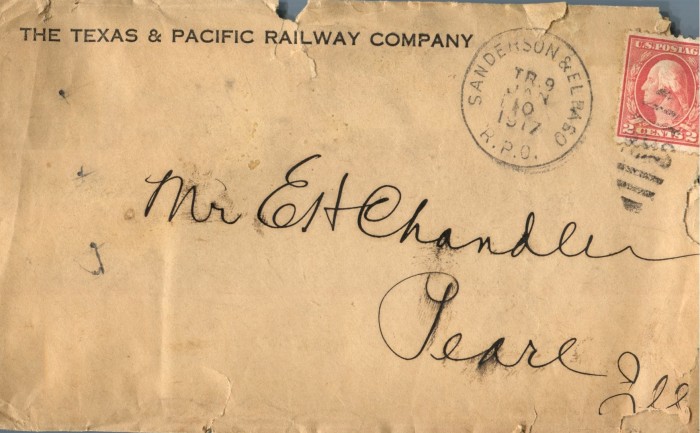 THE TEXAS & PACIFIC RAILWAY COMPANY
SANDERSON & EL PASO
TR. 9
JAN
10
1917
R.P.O.
U.S. POSTAG
2 CENTS 2
Mr E H Chandler
Pearl
Ill